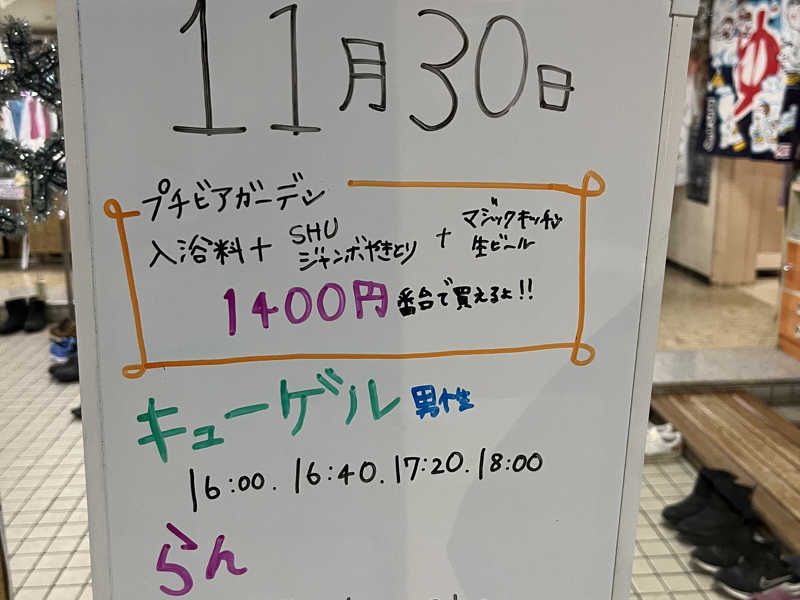 11月30日
プチビアガーデン
入浴料+ SHU ジャンボやきとり + マジックキッチン 生ビール
1400円 番台で買えるよ!!
キューゲル 男性
16:00. 16:40. 17:20. 18:00
らん